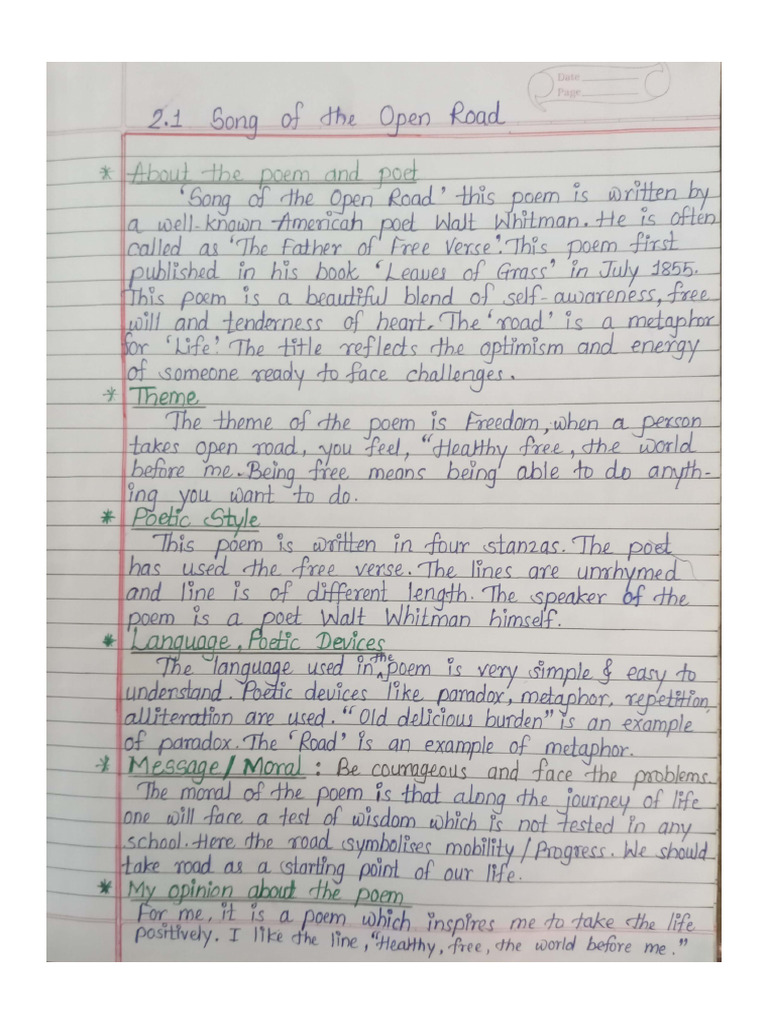 Date
Page
2.1 Song of the Open Road
* About the poem and poet
'Song of the Open Road' this poem is written by
a well-known American poet Walt Whitman. He is often
called as 'The Father of Free Verse'. This poem first
published in his book 'Leaves of Grass' in July 1855.
This poem is a beautiful blend of self-awareness, free
will and tenderness of heart. The 'road' is a metaphor
for 'Life'. The title reflects the optimism and energy
of someone ready to face challenges.
* Theme
The theme of the poem is Freedom, when a person
takes open road, you feel, "Healthy free, the world
before me. Being free means being able to do anyth-
ing you want to do.
* Poetic Style
This poem is written in four stanzas. The poet
has used the free verse. The lines are unrhymed
and line is of different length. The speaker of the
poem is a poet Walt Whitman himself.
* Language, Poetic Devices
The language used in the poem is very simple & easy to
understand. Poetic devices like paradox, metaphor, repetition,
alliteration are used. "Old delicious burden" is an example
of paradox. The 'Road' is an example of metaphor.
* Message/Moral : Be courageous and face the problems.
The moral of the poem is that along the journey of life
one will face a test of wisdom which is not tested in any
school. Here the road symbolises mobility/Progress. We should
take road as a starting point of our life.
* My opinion about the poem
For me, it is a poem which inspires me to take the life
positively. I like the line, "Healthy, free, the world before me."